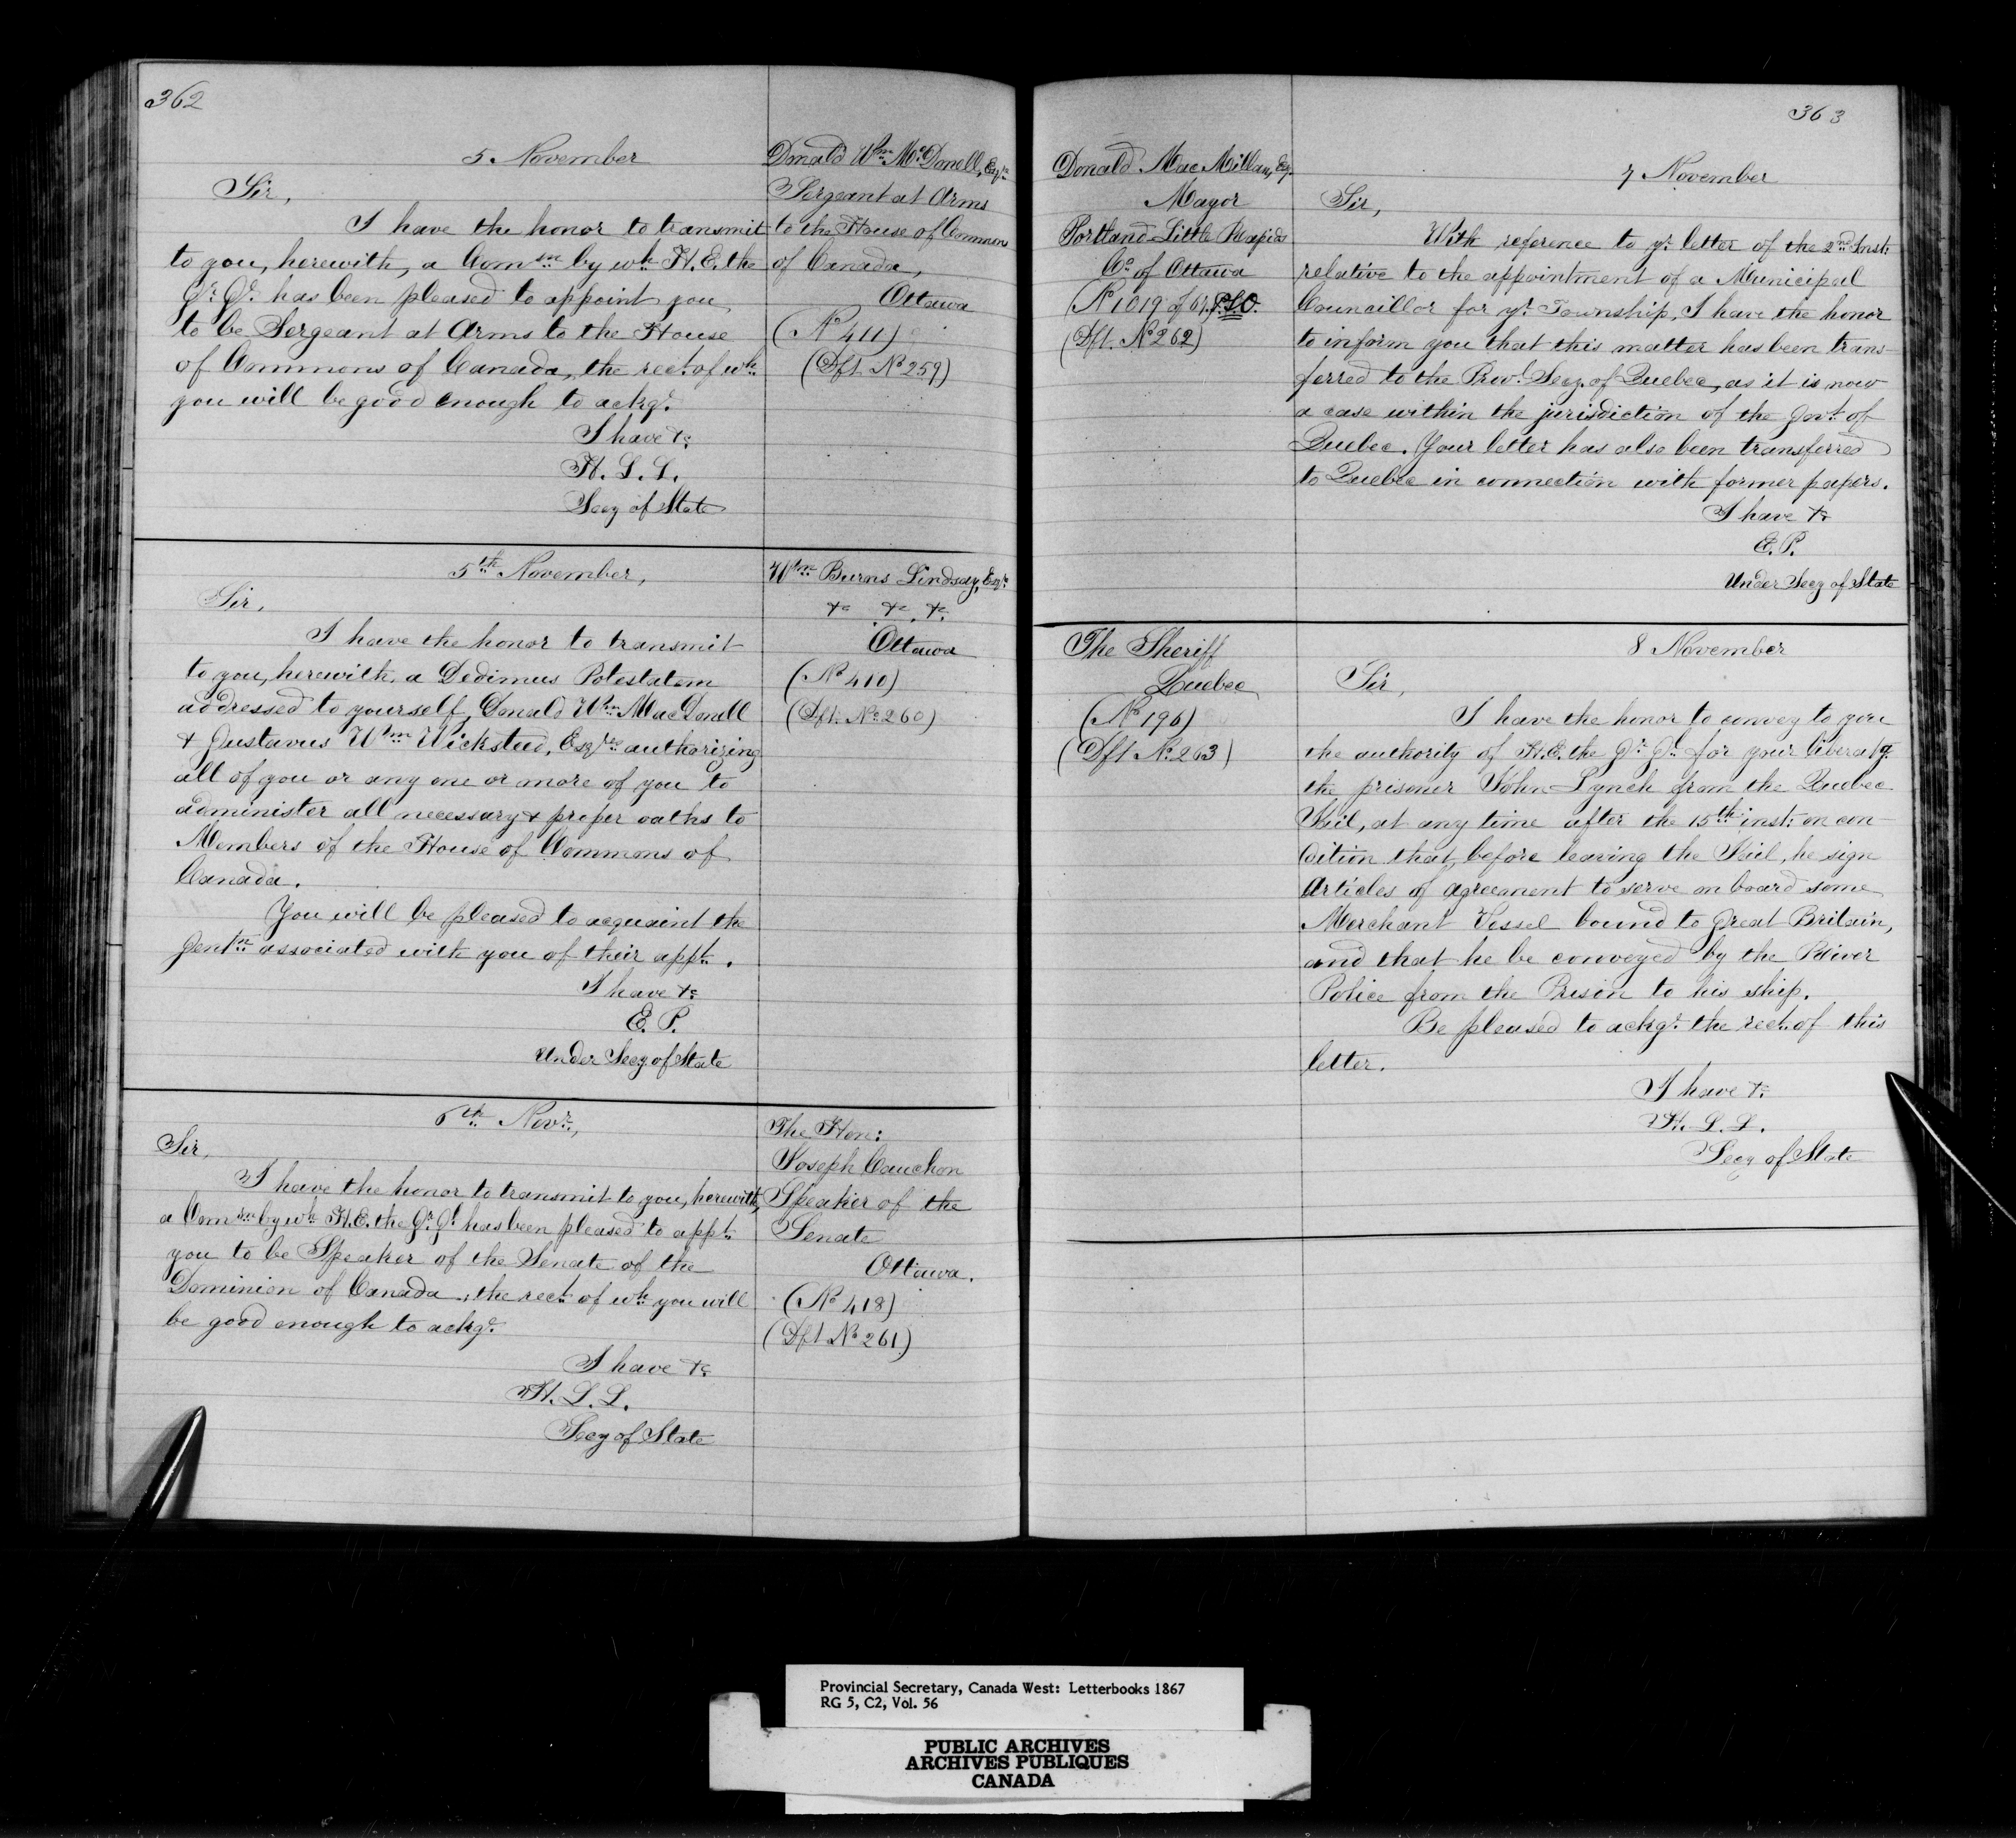 362
5 November
Sir,
I have the honor to transmit
to you, herewith, a Comsn by wh H. E. the
Gr. Gl. has been pleased to appoint you
to be Sergeant at Arms to the House
of Commons of Canada, the rect of wh
you will be good enough to ackge.
I have &c
H. L. L.
Secy of State
Donald Wm McDonell, Esqre
Sergeant at Arms
to the House of Commons
of Canada,
Ottawa
(No 411)
(Dft No 259)
5th November,
Sir,
I have the honor to transmit
to you, herewith, a Dedimus Potestatem
addressed to yourself, Donald Wm MacDonell
& Gustavus Wm Wicksteed, Esqres authorizing
all of you or any one or more of you to
administer all necessary & proper oaths to
Members of the House of Commons of
Canada.
You will be pleased to acquaint the
Gentn associated with you of their appt.
I have &c
E. P.
Under Secy of State
Wm Burns Lindsay, Esqr
&c &c &c.
Ottawa
(No 410)
(Dft. No 260)
6th Novr.,
Sir,
I have the honor to transmit to you, herewith,
a Comsn by wh H. E. the Gr. Gl has been pleased to appt.
you to be Speaker of the Senate of the
Dominion of Canada, the rect of wh you will
be good enough to ackge.
I have &c
H. L. L.
Secy of State
The Hon:
Joseph Cauchon
Speaker of the
Senate
Ottawa.
(No 418)
(Dft No 261)
363
Donald MacMillan, Esq.
Mayor
Portland Little Rapids
Co of Ottawa
(No 1019 of 67. P.S.O.
(Dft. No 262)
7 November
Sir,
With reference to yr letter of the 2nd Inst:
relative to the appointment of a Municipal
Councillor for yr Township, I have the honor
to inform you that this matter has been trans-
ferred to the Prov. Secy. of Quebec, as it is now
a case within the jurisdiction of the Govt. of
Quebec. Your letter has also been transferred
to Quebec in connection with former papers.
I have &c
E. P.
Under Secy of State
The Sheriff
Quebec
(No 196)
(Dft No 263)
8 November
Sir,
I have the honor to convey to you
the authority of H. E. the Gr. Gl. for your liberatg.
the prisoner John Lynch from the Quebec
Jail, at any time after the 15th inst: on con-
dition that, before leaving the Jail, he sign
Articles of agreement to serve on board some
Merchant Vessel bound to Great Britain,
and that he be conveyed by the River
Police from the Prison to his ship.
Be pleased to ackge. the rect. of this
letter.
I have &c
H. L. L.
Secy of State
Provincial Secretary, Canada West: Letterbooks 1867
RG 5, C2, Vol. 56
PUBLIC ARCHIVES
ARCHIVES PUBLIQUES
CANADA